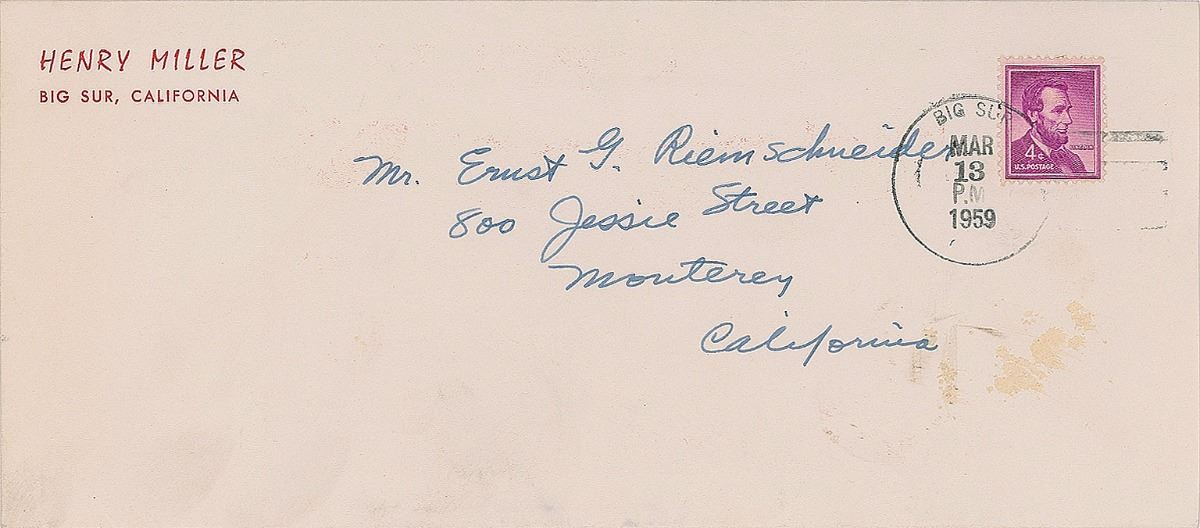 HENRY MILLER
BIG SUR, CALIFORNIA
Mr. Ernst G. Riemschneider
800 Jessie Street
Monterey
California
BIG SUR
MAR
13
P.M
1959
4¢
LINCOLN
U.S. POSTAGE